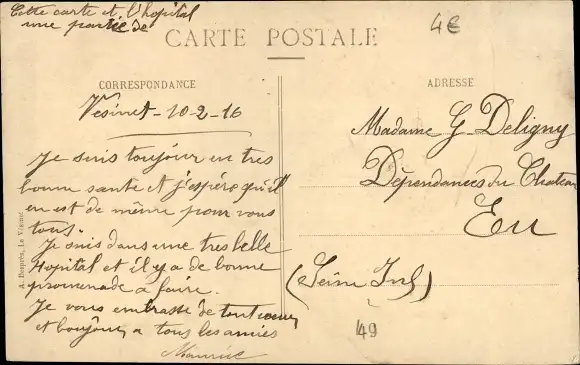 Cette carte et l'hopital
une partie de
4€
CARTE POSTALE
CORRESPONDANCE
ADRESSE
Vesinet - 10-2-16
Je suis toujour en tres
bonne sante et j'espére qu'il
en est de même pour vous
tous.
Je suis dans une tres belle
Hopital et il y a de bonne
promenade a faire.
Je vous embrasse de tout coeur
et boujour a tous les amies
Maurice
Madame G Deligny
Dépendances du Chateau
Eu
(Seine Inf)
49
A. Bosprés, Le Vésinet